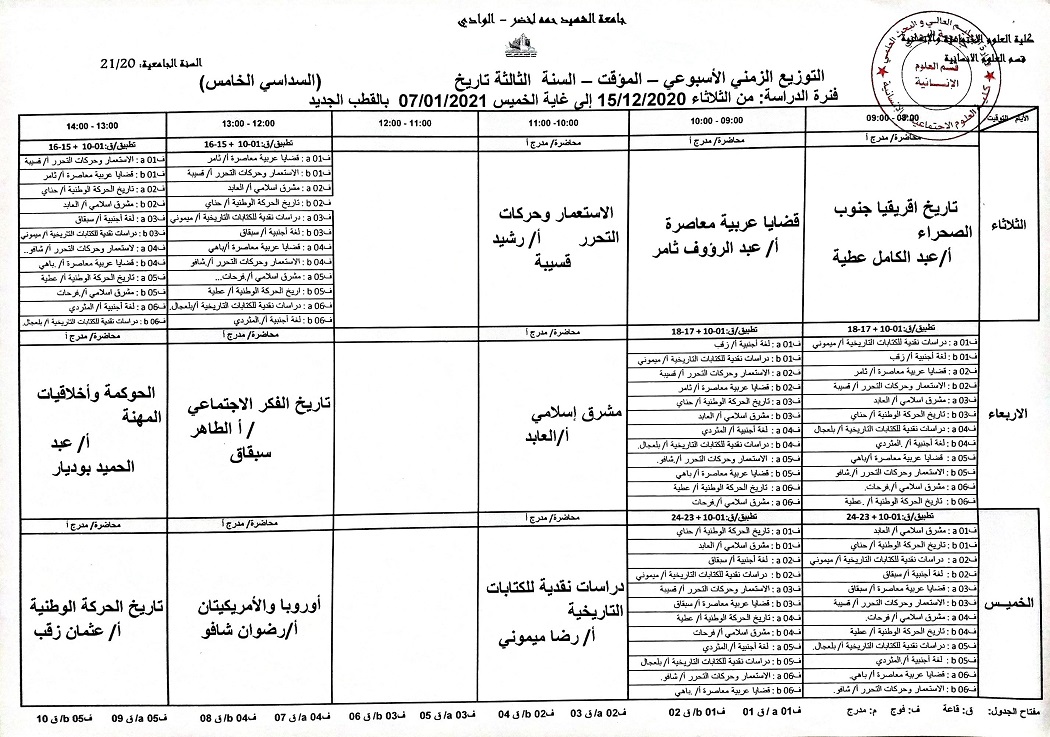 جامعة الشهيد حمه لخضر – الوادي
كلية العلوم الاجتماعية والإنسانية
قسم العلوم الانسانية
السنة الجامعية: 21/20
التوزيع الزمني الأسبوعي – المؤقت – السنة الثالثة تاريخ (السداسي الخامس)
فترة الدراسة: من الثلاثاء 15/12/2020 إلى غاية الخميس 07/01/2021 بالقطب الجديد
قسم العلوم
الإنسانية
الأيام التوقيت
08:00 - 09:00
09:00 - 10:00
10:00 - 11:00
11:00 - 12:00
12:00 - 13:00
13:00 - 14:00
الثلاثاء
محاضرة/ مدرج أ
تاريخ افريقيا جنوب
الصحراء
أ/عبد الكامل عطية
محاضرة/ مدرج أ
قضايا عربية معاصرة
أ/ عبد الرؤوف ثامر
محاضرة/ مدرج أ
الاستعمار وحركات
التحرر أ/ رشيد
قسيبة
تطبيق/ق:01-10 + 15-16
ف01 a : قضايا عربية معاصرة أ/ ثامر
ف01 b : الاستعمار وحركات التحرر أ/ قسيبة
ف02 a : مشرق اسلامي أ/ العابد
ف02 b : تاريخ الحركة الوطنية أ/ حناي
ف03 a : دراسات نقدية للكتابات التاريخية أ/ ميموني
ف03 b : لغة أجنبية أ/ سبقاق
ف04 a : قضايا عربية معاصرة أ/باهي
ف04 b : الاستعمار وحركات التحرر أ/شافو
ف05 a : مشرق اسلامي أ/.فرحات...
ف05 b : اريخ الحركة الوطنية أ/ عطية
ف06 a : دراسات نقدية للكتابات التاريخية أ/بلعجال.
ف06 b : لغة أجنبية أ/.المثردي
تطبيق/ق:01-10 + 15-16
ف01 a : الاستعمار وحركات التحرر أ/ قسيبة
ف01 b : قضايا عربية معاصرة أ/ ثامر
ف02 a : تاريخ الحركة الوطنية أ/ حناي
ف02 b : مشرق اسلامي أ/ العابد
ف03 a : لغة أجنبية أ/ سبقاق
ف03 b : دراسات نقدية للكتابات التاريخية أ/ ميموني
ف04 a : الاستعمار وحركات التحرر أ/ شافو..
ف04 b : قضايا عربية معاصرة أ/ .باهي
ف05 a : تاريخ الحركة الوطنية أ/ عطية
ف05 b : مشرق اسلامي أ/.فرحات
ف06 a : لغة أجنبية أ/ المثردي
ف06 b : دراسات نقدية للكتابات التاريخية أ/ بلعجال.
الاربعاء
تطبيق/ق:01-10 + 17-18
ف01 a : دراسات نقدية للكتابات التاريخية أ/ ميموني
ف01 b : لغة أجنبية أ/ زقب
ف02 a : قضايا عربية معاصرة أ/ ثامر
ف02 b : الاستعمار وحركات التحرر أ/ قسيبة
ف03 a : مشرق اسلامي أ/ العابد
ف03 b : تاريخ الحركة الوطنية أ/ حناي
ف04 a : دراسات نقدية للكتابات التاريخية أ/ بلعجال
ف04 b : لغة أجنبية أ/ .المثردي
ف05 a : قضايا عربية معاصرة أ/باهي
ف05 b : الاستعمار وحركات التحرر أ/.شافو
ف06 a : مشرق اسلامي أ/ فرحات.
ف06 b : تاريخ الحركة الوطنية أ/ .عطية
تطبيق/ق:01-10 + 17-18
ف01 a : لغة أجنبية أ/ زقب
ف01 b : دراسات نقدية للكتابات التاريخية أ/ ميموني
ف02 a : الاستعمار وحركات التحرر أ/ قسيبة
ف02 b : قضايا عربية معاصرة أ/ ثامر
ف03 a : تاريخ الحركة الوطنية أ/ حناي
ف03 b : مشرق اسلامي أ/ العابد
ف04 a : لغة أجنبية أ/ المثردي
ف04 b : دراسات نقدية للكتابات التاريخية أ/ بلعجال.
ف05 a : الاستعمار وحركات التحرر أ/ شافو.
ف05 b : قضايا عربية معاصرة أ/ باهي
ف06 a : تاريخ الحركة الوطنية أ/ عطية
ف06 b : مشرق اسلامي أ/.فرحات
محاضرة/ مدرج أ
مشرق إسلامي
أ/العابد
محاضرة/ مدرج أ
تاريخ الفكر الاجتماعي
/ أ الطاهر
سبقاق
محاضرة/ مدرج أ
الحوكمة وأخلاقيات
المهنة
أ/ عبد
الحميد بوديار
الخميس
تطبيق/ق:01-10 + 23-24
ف01 a : مشرق اسلامي أ/ العابد
ف01 b : تاريخ الحركة الوطنية أ/ حناي
ف02 a : دراسات نقدية للكتابات التاريخية أ/ ميموني
ف02 b : لغة أجنبية أ/ سبقاق
ف03 a : قضايا عربية معاصرة أ/ سبقاق
ف03 b : الاستعمار وحركات التحرر أ/ قسيبة
ف04 a : مشرق اسلامي أ/ فرحات.
ف04 b : تاريخ الحركة الوطنية أ/ عطية
ف05 a : دراسات نقدية للكتابات التاريخية أ/ بلعجال.
ف05 b : لغة أجنبية أ/.المثردي
ف06 a : قضايا عربية معاصرة أ/ باهي.
ف06 b : الاستعمار وحركات التحرر أ/ شافو.
تطبيق/ق:01-10 + 23-24
ف01 a : تاريخ الحركة الوطنية أ/ حناي
ف01 b : مشرق اسلامي أ/ العابد
ف02 a : لغة أجنبية أ/ سبقاق
ف02 b : دراسات نقدية للكتابات التاريخية أ/ ميموني
ف03 a : الاستعمار وحركات التحرر أ/ قسيبة
ف03 b : قضايا عربية معاصرة أ/ سبقاق
ف04 a : تاريخ الحركة الوطنية أ/ عطية
ف04 b : مشرق اسلامي أ/ فرحات
ف05 a : لغة أجنبية أ/.المثردي
ف05 b : دراسات نقدية للكتابات التاريخية أ/ بلعجال
ف06 a : الاستعمار وحركات التحرر أ/ .شافو.
ف06 b : قضايا عربية معاصرة أ/ .باهي
محاضرة/ مدرج أ
دراسات نقدية للكتابات
التاريخية
أ/ رضا ميموني
محاضرة/ مدرج أ
أوروبا والأمريكيتان
أ/رضوان شافو
محاضرة/ مدرج أ
تاريخ الحركة الوطنية
أ/ عثمان زقب
مفتاح الجدول: م: مدرج ف: فوج ق: قاعة ف01 a /ق 01 ف01 b/ق 02 ف02 a/ق 03 ف02 b/ق 04 ف03 a/ق 05 ف03 b/ق 06 ف04 a/ق 07 ف04 b/ق 08 ف05 a/ق 09 ف05 b/ق 10